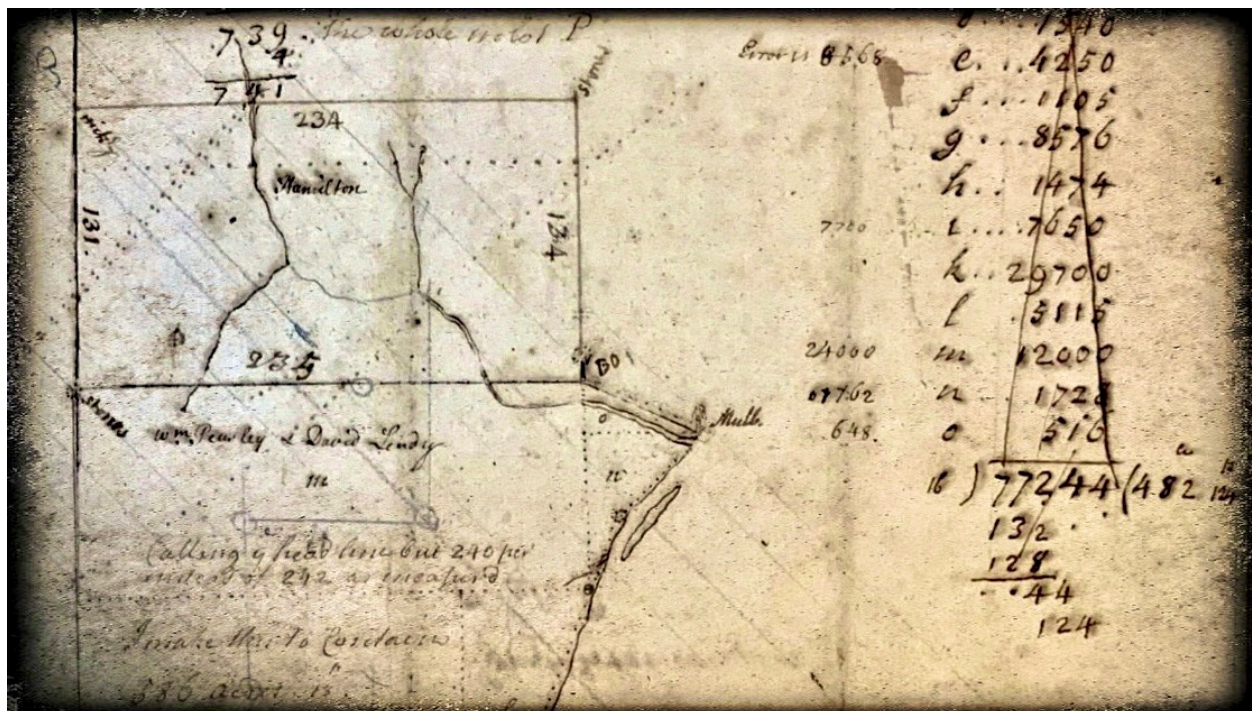 739 . The whole in lot P
4
741
Stones
Error is 8568
234
Hamilton
131
134
235
BO
Mulb.
Stones
Wm. Pewsley & David Lendry
o
n
m
Calling ye head line but 240 per
insted of 242 as measured
I make this to Contain
586 acres
7700
24000
01762
648.
. 1540
e . . . 4250
f . . . 1105
g . . . 8576
h . . 1474
i . . . 7650
k . . 29700
l . . 5115
m 12000
n . 1728
o . 516
16 ) 77244 ( 482 124
132
128
. . 44
124